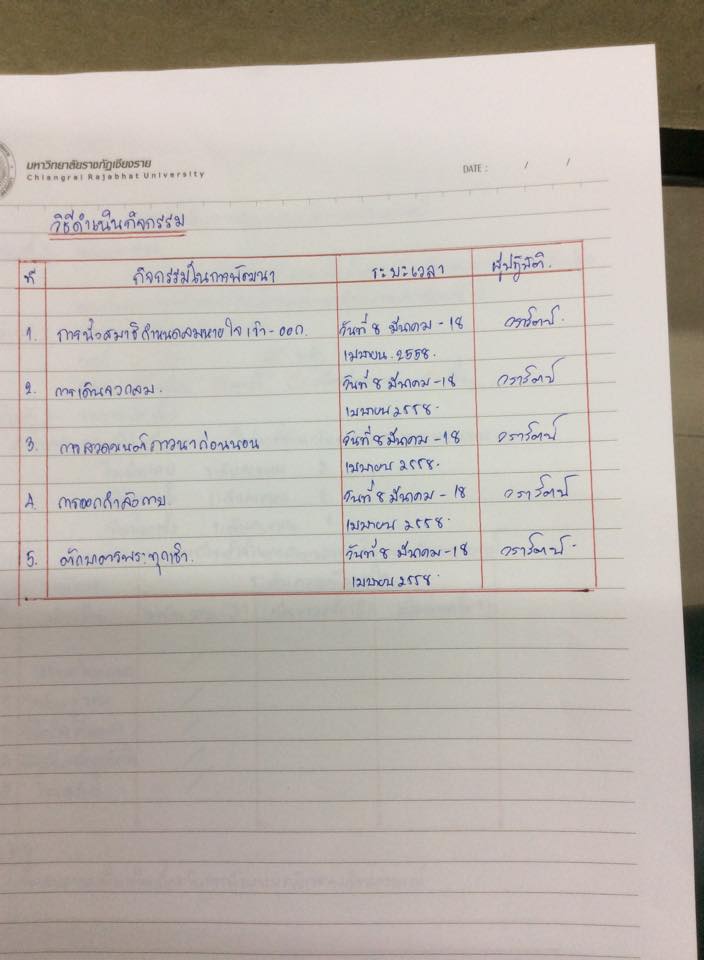 มหาวิทยาลัยราชภัฏเชียงราย
Chiangrai Rajabhat University
DATE : / /
วิธีดำเนินกิจกรรม
ที่ กิจกรรมในการพัฒนา ระยะเวลา ผู้ปฏิบัติ.
1. การนั่งสมาธิกำหนดลมหายใจเข้า-ออก. วันที่ 8 มีนาคม - 18 วรารัตน์.
เมษายน. 2558.
2. การเดินจงกลม. วันที่ 8 มีนาคม - 18 วรารัตน์
เมษายน 2558.
3. การสวดมนต์ภาวนาก่อนนอน วันที่ 8 มีนาคม - 18 วรารัตน์
เมษายน 2558.
4. การออกกำลังกาย. วันที่ 8 มีนาคม - 18 วรารัตน์
เมษายน 2558.
5. ตักบาตรพระทุกเช้า. วันที่ 8 มีนาคม - 18 วรารัตน์.
เมษายน 2558.